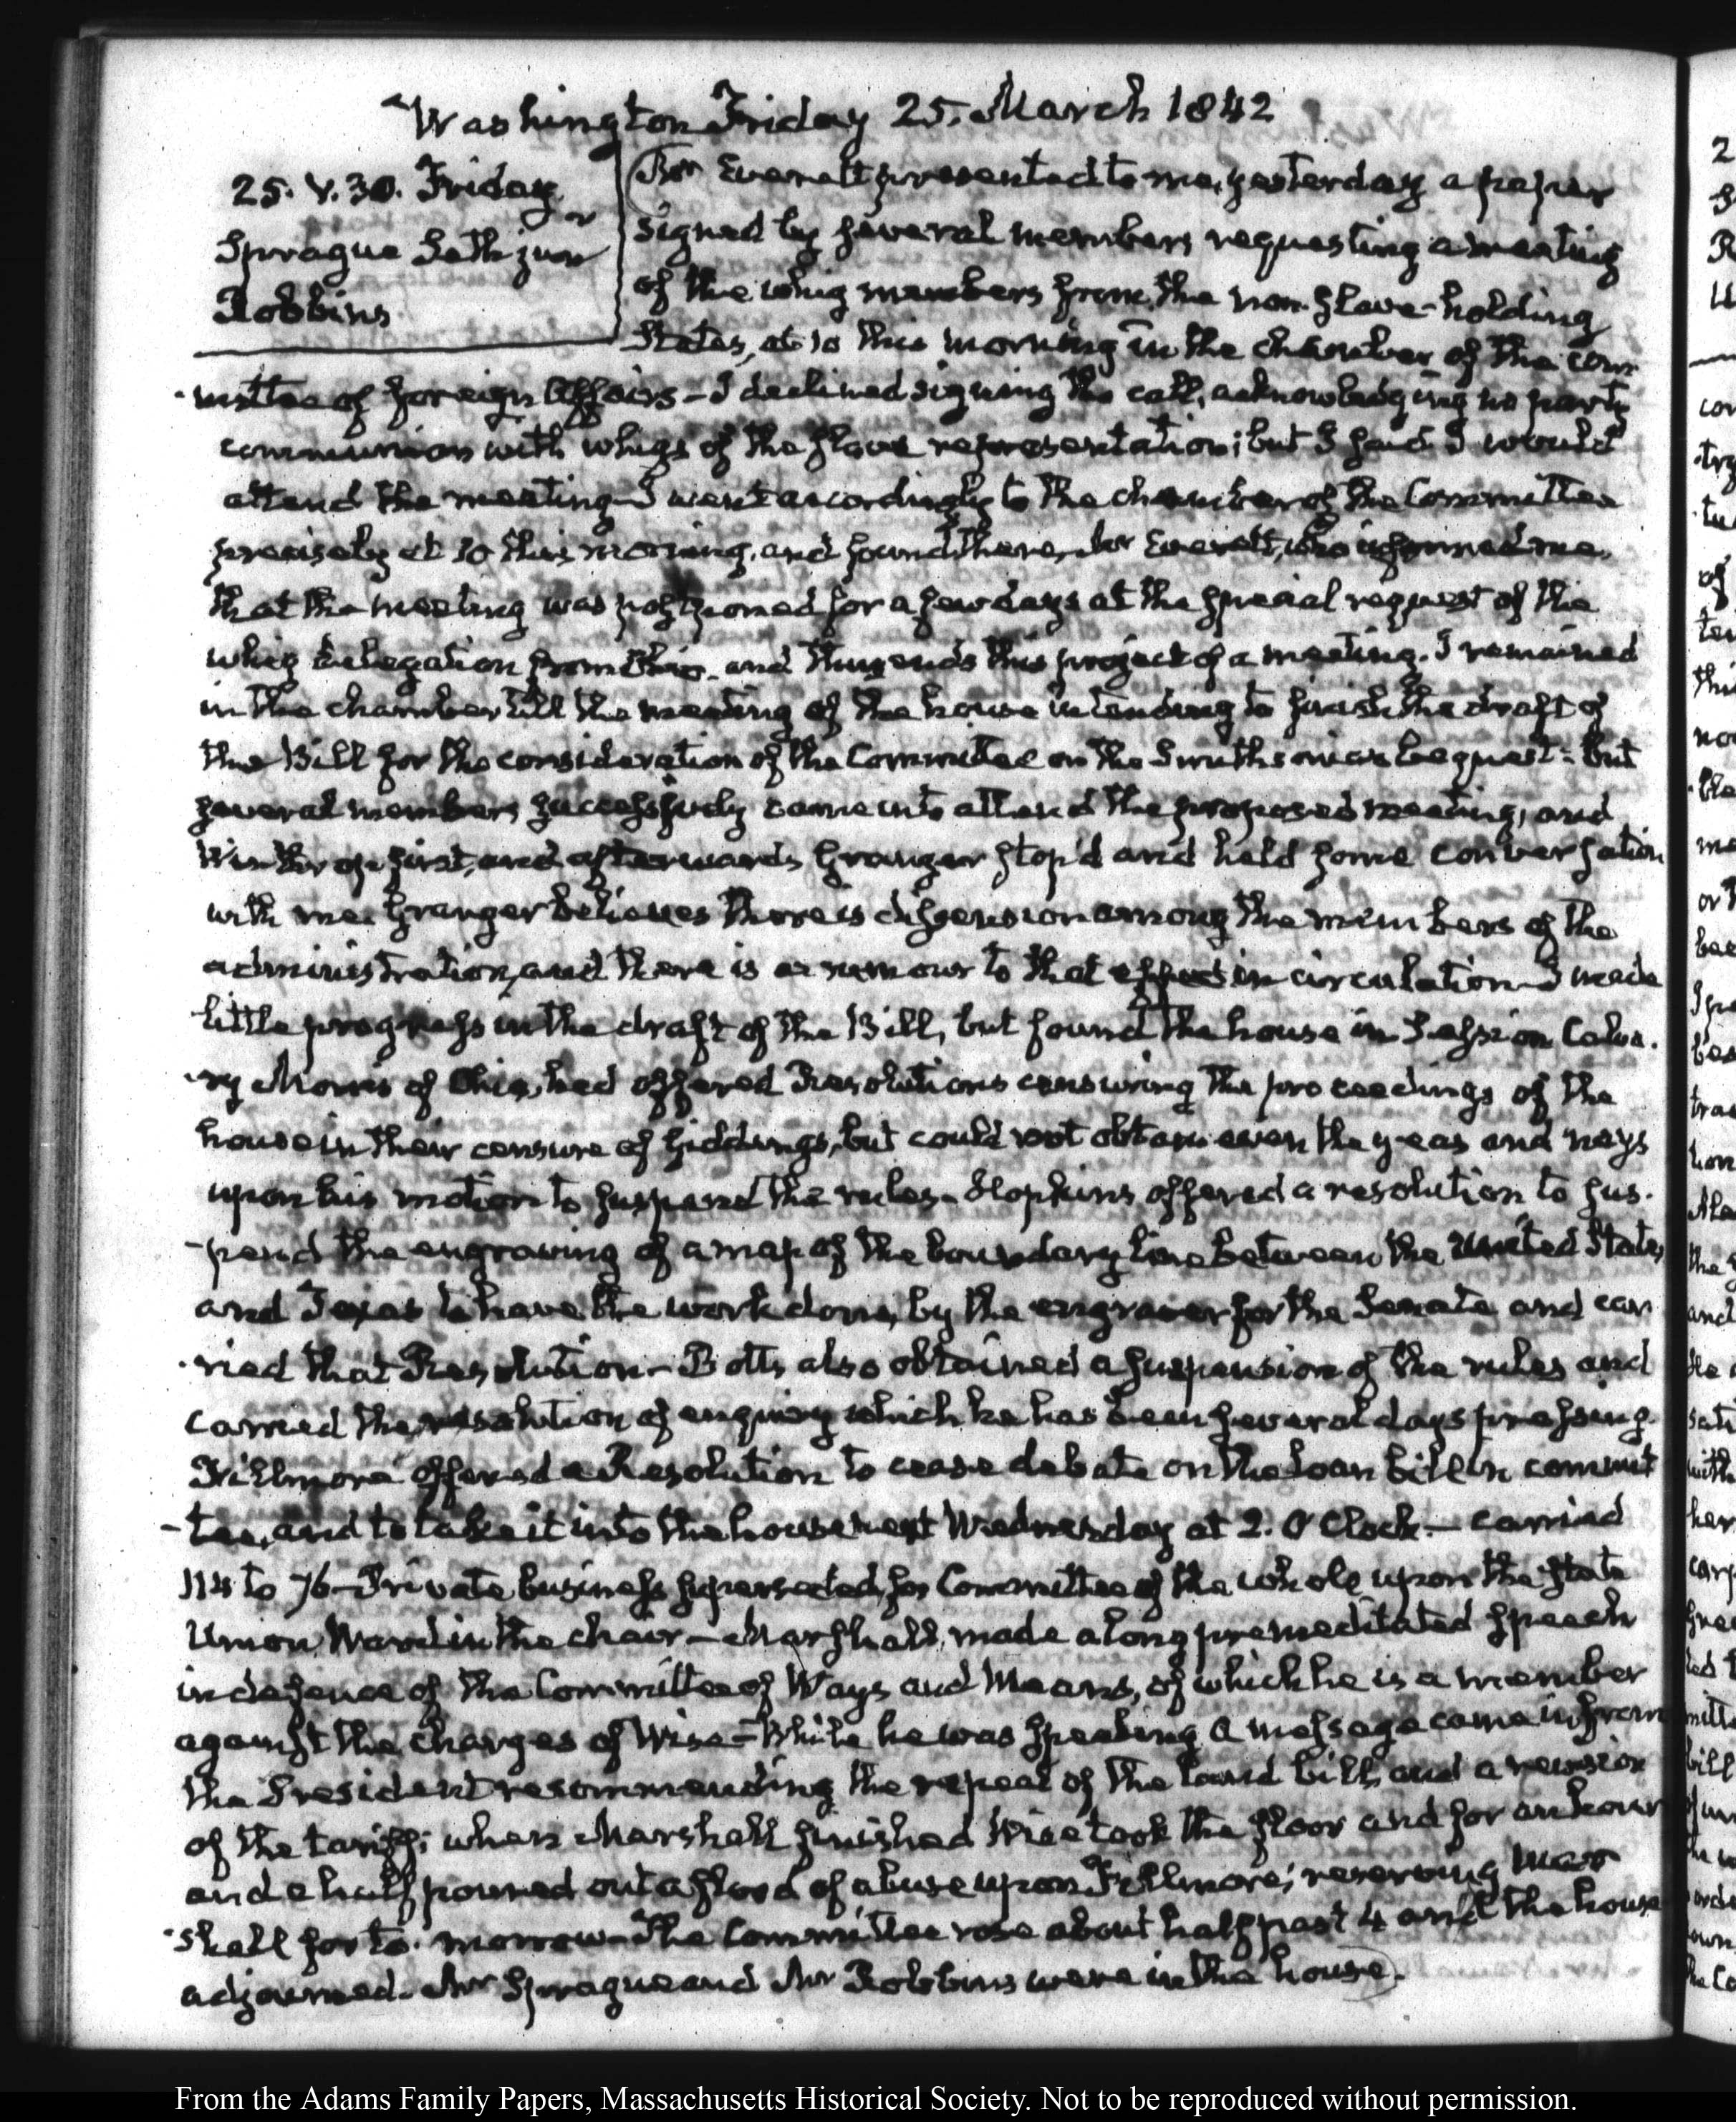 Washington Friday 25. March 1842
25. V.30. Friday
Sprague Seth junr
Robbins
Mr Everett presented to me, yesterday a paper
signed by several members requesting a meeting
of the whig members from the non-slave-holding
States, at 10 this morning in the chamber of the com
-mittee of foreign Affairs – I declined signing the call, acknowledging no party
communion with whigs of the slave representation; but I said I would
attend the meeting – I went accordingly to the chamber of the Committee
precisely at 10 this morning, and found there, Mr Everett, who informed me,
that the meeting was postponed for a few days at the special request of the
whig delegation from Ohio – and thus ends this project of a meeting. I remained
in the chamber till the meeting of the house intending to finish the draft of
the Bill for the consideration of the Committee on the Smithsonian bequest: but
several members successively came in to attend the proposed meeting, and
Winthrop first, and afterwards Granger stop'd and held some conversation
with me. Granger believes there is dissension among the members of the
administration, and there is a rumour to that effect in circulation – I made
little progress in the draft of the Bill, but found the house in Session Calva-
-ry Morris of Ohio, had offered Resolutions censuring the proceedings of the
house in their censure of Giddings, but could not obtain even the yeas and nays
upon his motion to suspend the rules – Hopkins offered a resolution to sus-
-pend the engraving of a map of the boundary line between the United States
and Texas to have the work done, by the engraver for the Senate and car
-ried that Resolution – Botts also obtained a suspension of the rules and
carried the resolution of enquiry which he has been several days pressing.
Fillmore offered a Resolution to cease debate on the Loan bill in commit
-tee, and to take it into the house next Wednesday at 2. O'Clock – carried
114 to 76 – Private business superseded, for Committee of the whole upon the state
Union, Ward in the chair – Marshall, made a long premeditated speech
in defence of the Committee of Ways and Means, of which he is a member
against the charges of Wise – While he was speaking a message came in from
the President recommending the repeal of the land bill, and a revision
of the tariff; when Marshall finished Wise took the floor and for an hour
and a half poured out a flood of abuse upon Fillmore; reserving Mar
-shall for to-morrow – The Committee rose about half past 4 and the house
adjourned. Mr Sprague and Mr Robbins were in the house.
From the Adams Family Papers, Massachusetts Historical Society. Not to be reproduced without permission.